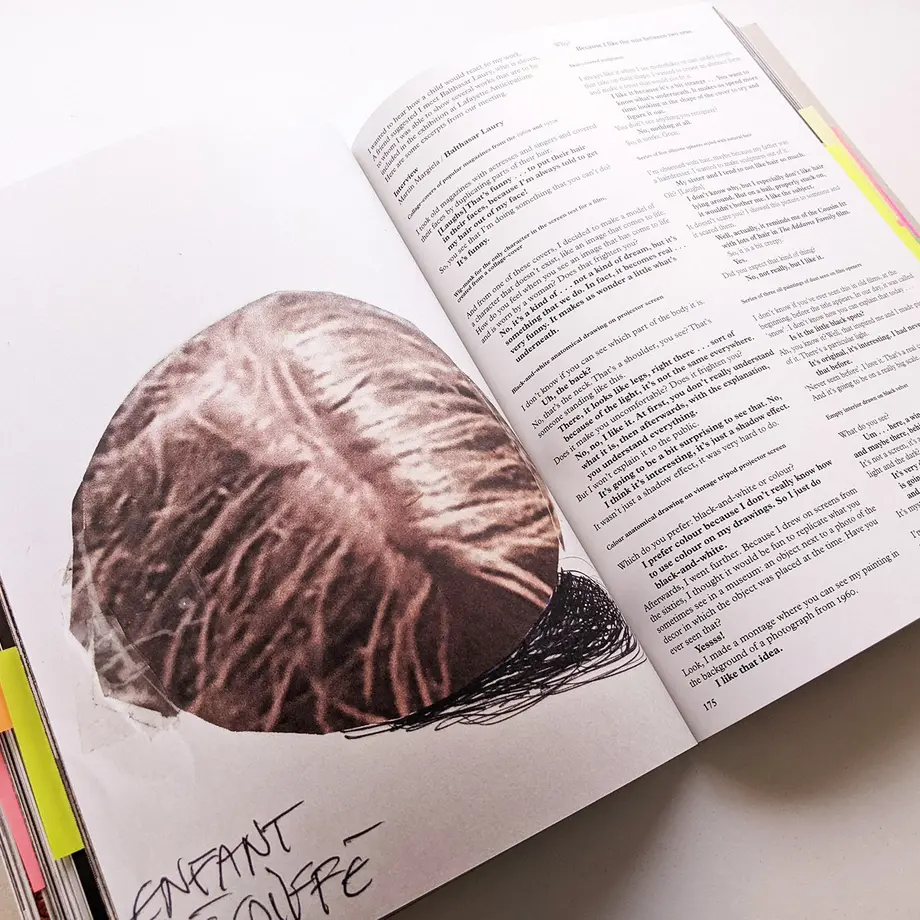 ENFANT
COIFFÉ
I wanted to hear how a child would react to my work.
A friend suggested I meet Balthasar Laury, who is eleven,
to whom I was able to show several works that are to be
included in the exhibition at Lafayette Anticipations.
Here are some excerpts from our meeting.
Interview
Martin Margiela / Balthasar Laury
Collage-covers of popular magazines from the 1960s and 1970s
I took old magazines with actresses and singers and covered
their faces by duplicating parts of their hair.
[Laughs] That's funny . . . to put their hair
in their faces, because I'm always told to get
my hair out of my face!
So, you see that I'm doing something that you can't do?
It's funny.
created from a collage-cover
And from one of these covers, I decided to make a model of
a character that doesn't exist, like an image that comes to life.
How do you feel when you see an image that has come to life
and is worn by a woman? Does that frighten you?
No, it's a kind of . . . not a kind of dream, but it's
something that we do. In fact, it becomes real . . .
very funny, it makes us wonder a little what's
underneath.
Black-and-white anatomical drawing on projector screen
I don't know if you can see which part of the body it is.
Uh, the back?
No, that's the neck. That's a shoulder, you see? That's
someone standing like this.
There, it looks like legs, right there . . . sort of
because of the light, it's not the same everywhere.
Does it make you uncomfortable? Does it frighten you?
No, no, I like it. At first, you don't really understand
what it is, then afterwards, with the explanation,
you understand everything.
But I won't explain it to the public.
It's going to be a bit surprising to see that. No,
I think it's interesting, it's just a shadow effect.
It wasn't just a shadow effect, it was very hard to do.
Colour anatomical drawing on vintage tripod projector screen
Which do you prefer: black-and-white or colour?
I prefer colour because I don't really know how
to use colour on my drawings. So I just do
black-and-white.
Afterwards, I went further. Because I drew on screens from
the sixties, I thought it would be fun to replicate what you
sometimes see in a museum: an object next to a photo of the
decor in which the object was placed at the time. Have you
ever seen that?
Yessss!
Look, I made a montage where you can see my painting in
the background of a photograph from 1960.
I like that idea.
175
Why?
Because I like the mix between two eras.
I like it because it's a bit strange . . . You want to
know what's underneath. It makes us spend more
time looking at the shape of the cover to try and
figure it out.
You don't see anything you recognize?
No, nothing at all.
So, it works. Great.
I'm obsessed with hair, maybe because my father was
a hairdresser. I wanted to make sculptures out of it.
My sister and I tend to not like hair so much.
Oh? [Laughs]
I don't know why, but I especially don't like hair
lying around. But on a ball, properly stuck on,
it wouldn't bother me. I like the subject.
It doesn't scare you? I showed this picture to someone and
it scared them.
Well, actually, it reminds me of the Cousin Itt
with lots of hair in The Addams Family film.
So, it is a bit creepy.
Yes.
Did you expect that kind of thing?
No, not really, but I like it.
Series of three oil paintings of dust seen on film openers
I don't know if you've ever seen this in old films, at the
beginning, before the title appears. In our day, it was called
Is it the little black spots?
of it. There's a particular light.
It's original, it's interesting. I had
that before.
Empty interior drawn on black velvet
What do you see?
Um . . . here, a
and maybe there, behi
It's not a screen,
light and the dark
It's very
is goin